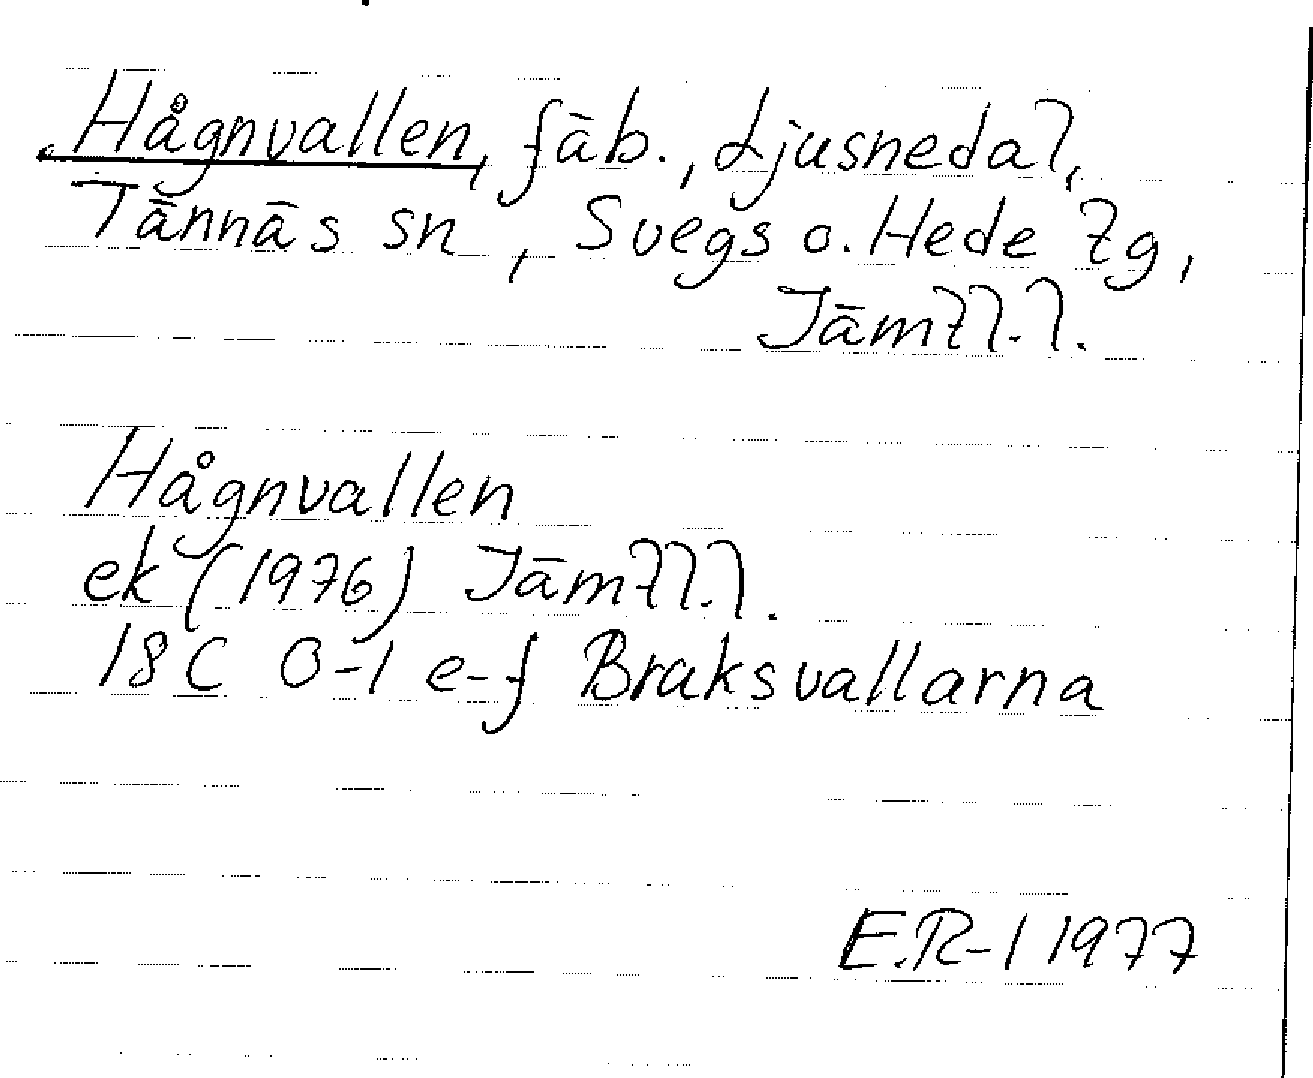 Hågnvallen, fäb., Ljusnedal,
Tännäs sn, Svegs o. Hede tg,
Jämtl. l.
Hågnvallen
ek (1976) Jämtl. l.
18C 0-1 e-f Braksvallarna
E.R-l 1977